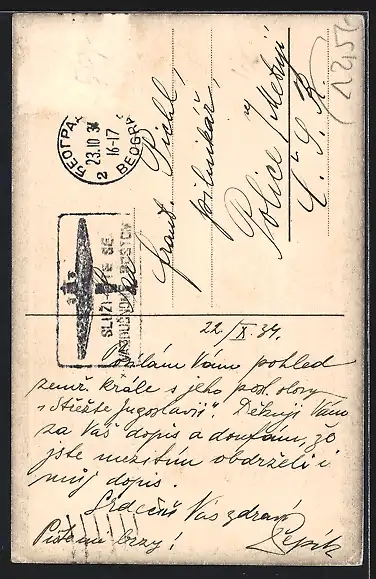 БЕОГРАД
23.10 34
16-17
2
BEOGRAD
SLUŽI-TE SE
VAZDUŠNOM POŠTOM
Pan
Frant. Pichl,
pilnikář,
Police /Metují
Č. S. R.
22/X 34.
Posílám Vám pohled
zemř. krále s jeho posl. slovy
"Střežte Jugoslavii". Děkuji Vám
za Váš dopis a doufám, že
jste mezitím obdrželi i
můj dopis.
Srdečně Vás zdraví
Pište brzy!